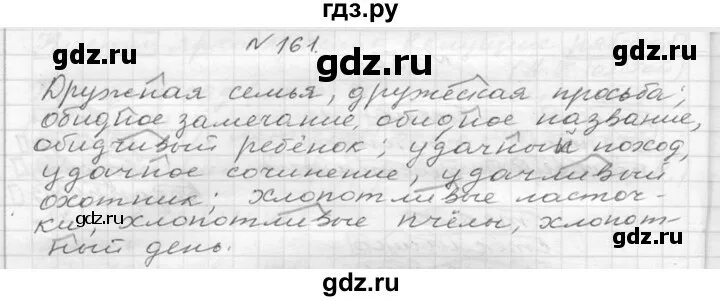 гдз.ру
№ 161.
Дружная семья, дружеская просьба;
обидное замечание, обидное название,
обидчивый ребёнок; удачный поход,
удачное сочинение, удачливый
охотник; хлопотливые ласточ-
ки, хлопотливые пчёлы, хлопот-
ный день.
gdz.ru
gdz.ru
gdz.ru
gdz.ru
gdz.ru
gdz.ru